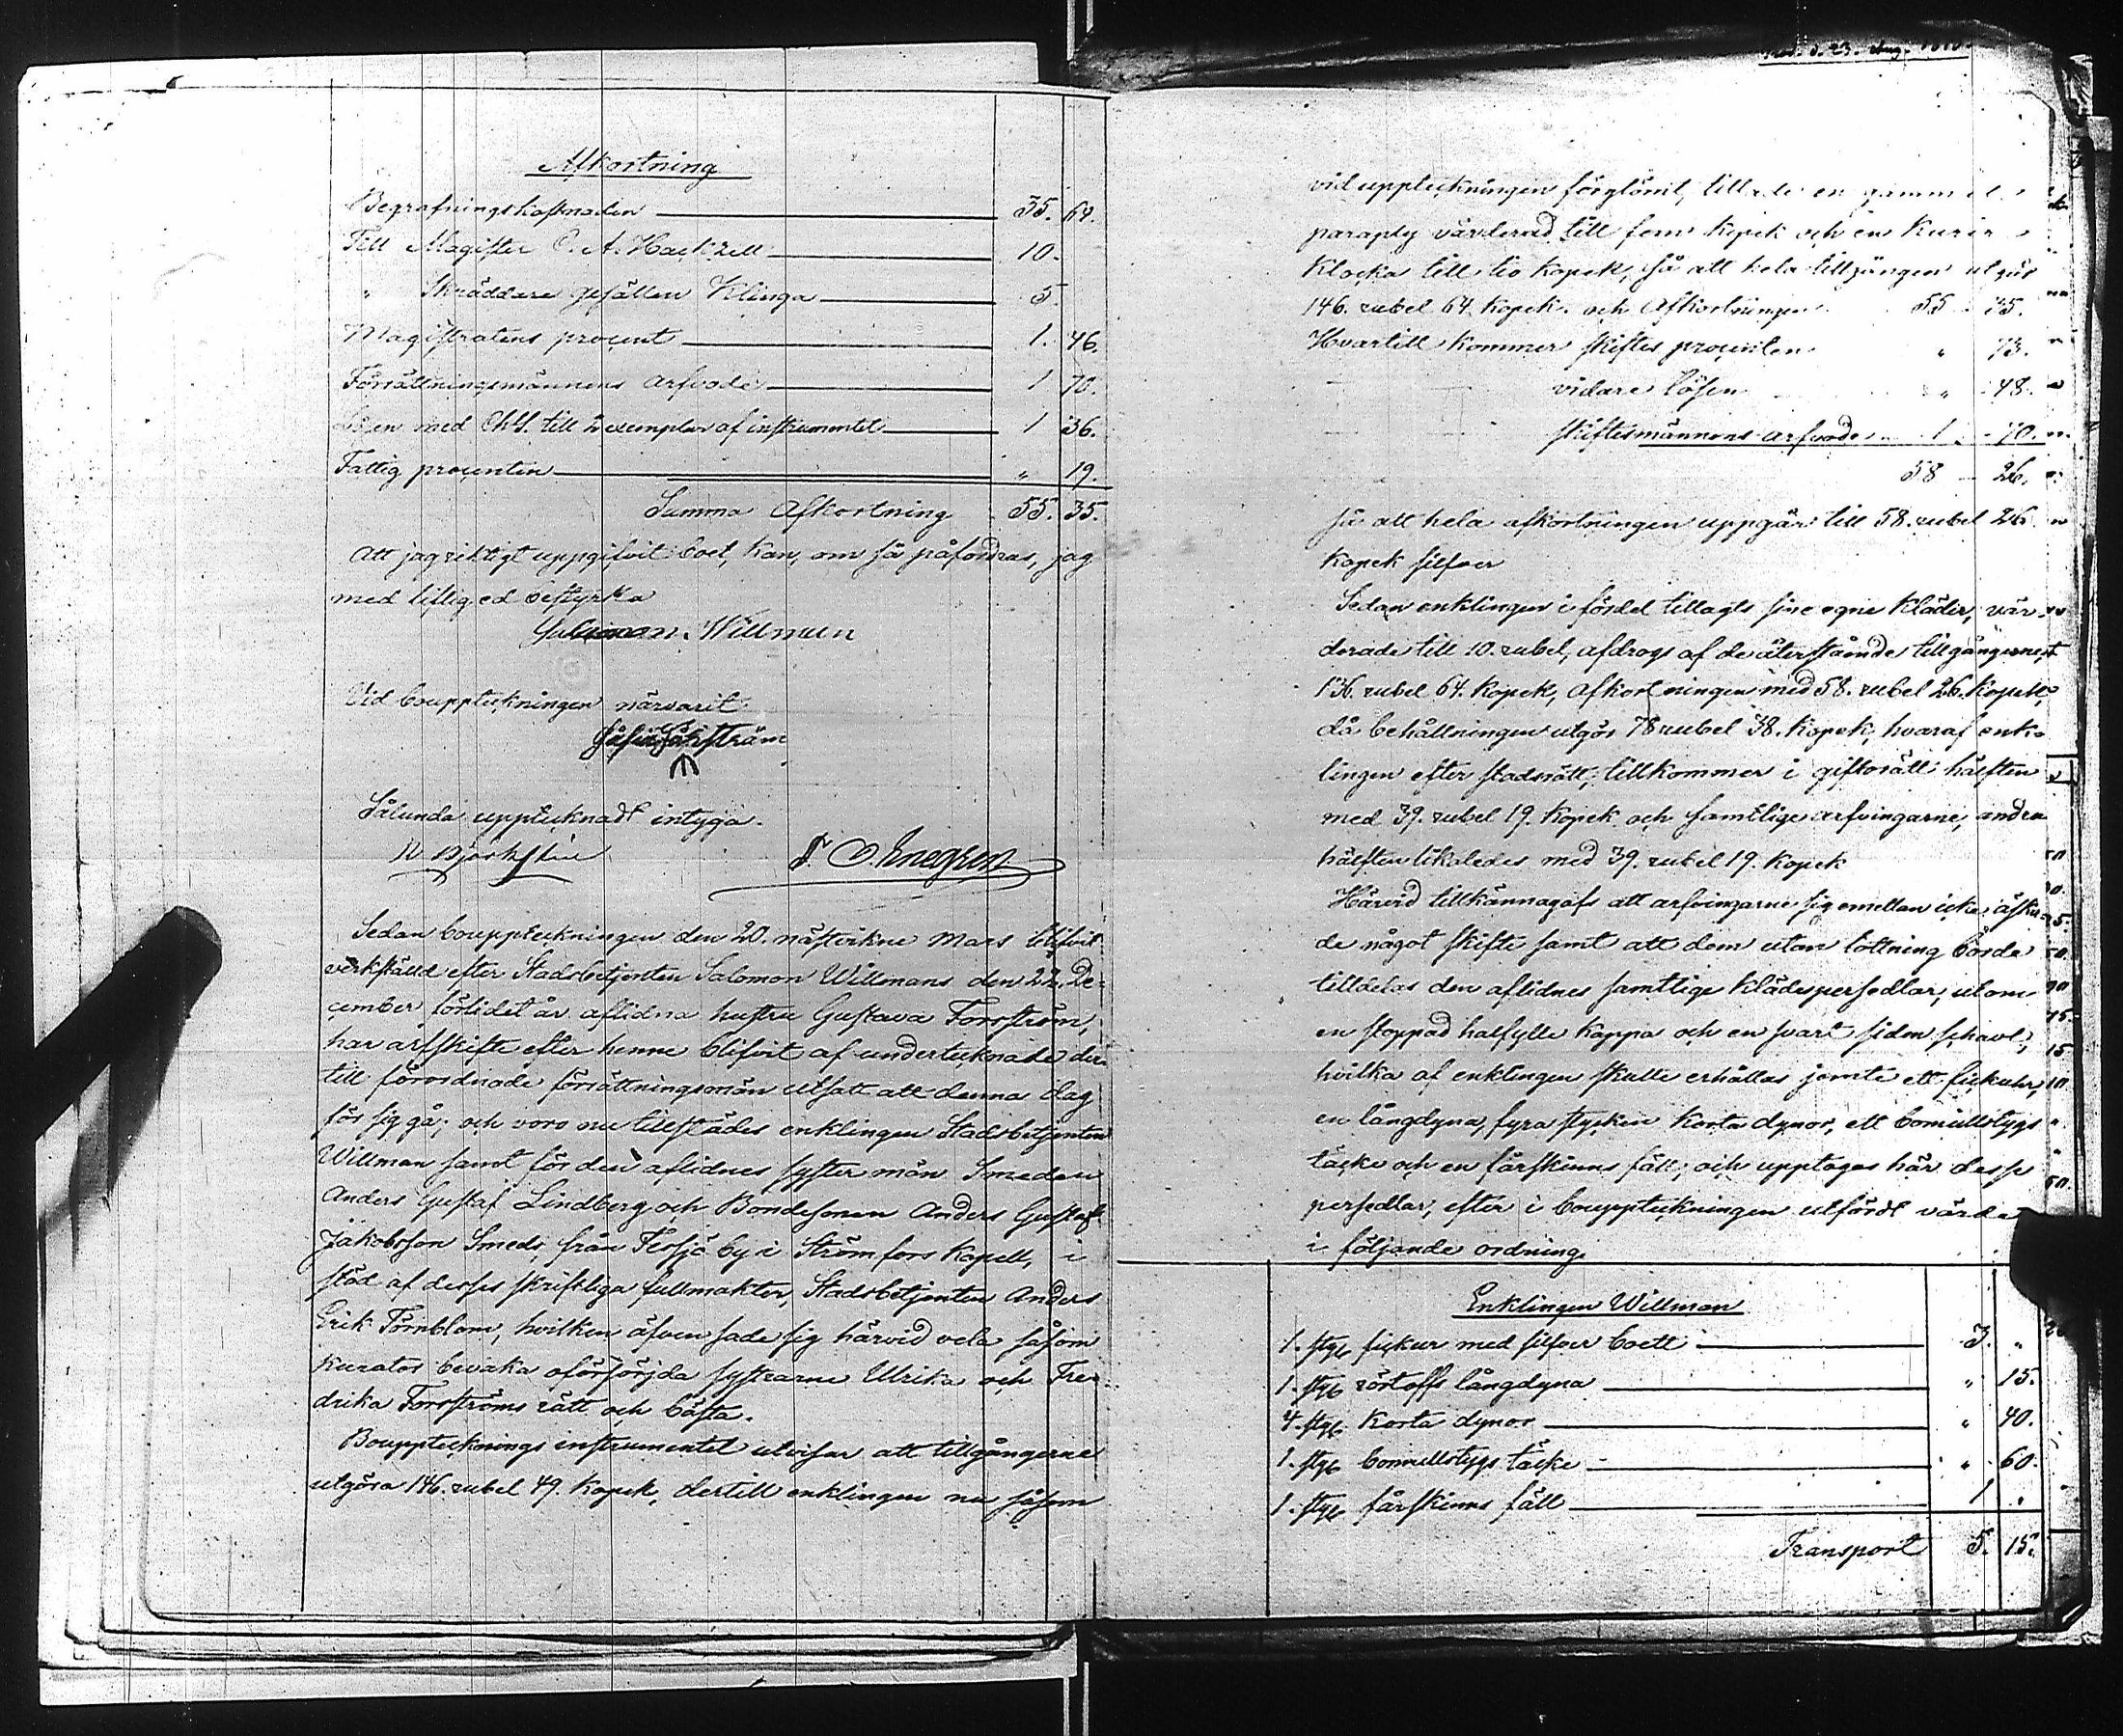 Afkortning
Begrafningskostnaden 35. 64.
Till Magister C. A. Hackzell 10.
" Skräddare gesällen Klinga 5.
Magistratens procent 1. 46.
Försättningsmännens arfvode 1 70.
Lösen med Ch4. till 2 exemplar af instrumentet 1 36.
Fattig procenten " 19.
Summa Afkortning 55. 35.
Att jag riktigt uppgifvit boet, kan, om så påfordras, jag
med liflig ed bestyrka
Salomon Willman
Vid bouppteckningen närvarit
Sålunda upptecknadt intyga.
N Björkstén S. O. Enegren
Sedan bouppteckningen den 20. nästvikne Mars blifvit
verkställd efter Stadsbetjenten Salomon Willmans den 22. De-
cember förlidet år aflidna hustru Gustava Forsström,
har arfskifte efter henne blifvit af undertecknade der-
till förordnade försättningsmän utsatt att denna dag
för sig gå; och voro nu tillstädes enklingen Stadsbetjenten
Willman samt för den aflidnes syster män Smeden
Anders Gustaf Lindberg och Bondesonen Anders Gustaf
Jakobsson Smeds, från Tesjö by i Strömfors kapell, i
stöd af desses skriftliga fullmakter, Stadsbetjenten Anders
Erik Törnblom, hvilken äfven sade sig härvid vela såsom
kurator bevaka oförsörjda systrarne Ulrika och Fre-
drika Forsströms rätt och bästa.
Bouppteckningsinstrumentet utvisar att tillgångerne
utgöra 146. rubel 49. kopek, dertill enklingen nu såsom
d. 23. Aug.
vid uppteckningen förglömt, tillade en gammal
paraply värderad till fem kopek och en Kurir
klocka till tio kopek, så att hela tillgången utgör
146. rubel 64. kopek. och Afkortningen 55 - 35.
Hvartill kommer skiftes procenten " - 73.
vidare lösen " - 48.
skiftesmännens arfvode 1 - 70.
58 - 26.
så att hela afkortningen uppgår till 58. rubel 26
kopek silfver
Sedan enklingen i fördel tillagts sine egne kläder, vär-
derade till 10. rubel, afdrogs af de återstående tillgångerne,
136. rubel 64. kopek, afkortningen med 58. rubel 26. kopek,
då behållningen utgör 78 rubel 38. kopek, hvaraf enk-
lingen efter stadsrätt, tillkommer i giftorätt hälften
med 39. rubel 19. kopek och samtlige arfvingarne, andra
hälften likaledes med 39. rubel 19. kopek
Härvid tillkännagafs att arfvingarne sig emellan icke äska-
de något skifte samt att dem utan lottning borde
tilldelas den aflidnes samtlige klädespersedlar, utom
en stoppad halfylle kappa och en svart siden schavl,
hvilka af enklingen skulle erhållas jemte ett fickuhr,
en långdyna, fyra stycken korta dynor, ett bomullstygs
täcke och en fårskinns fäll; och upptogos här dess
persedlar, efter i bouppteckningen utfördt värde
i följande ordning.
Enklingen Willman
1. styck fickur med silfver boett 3. "
1. styck röstoffs långdyna " 15.
4. styck korta dynor " 40.
1. styck bomullstygs täcke " 60.
1. styck fårskinns fäll 1 "
Transport 5. 15.